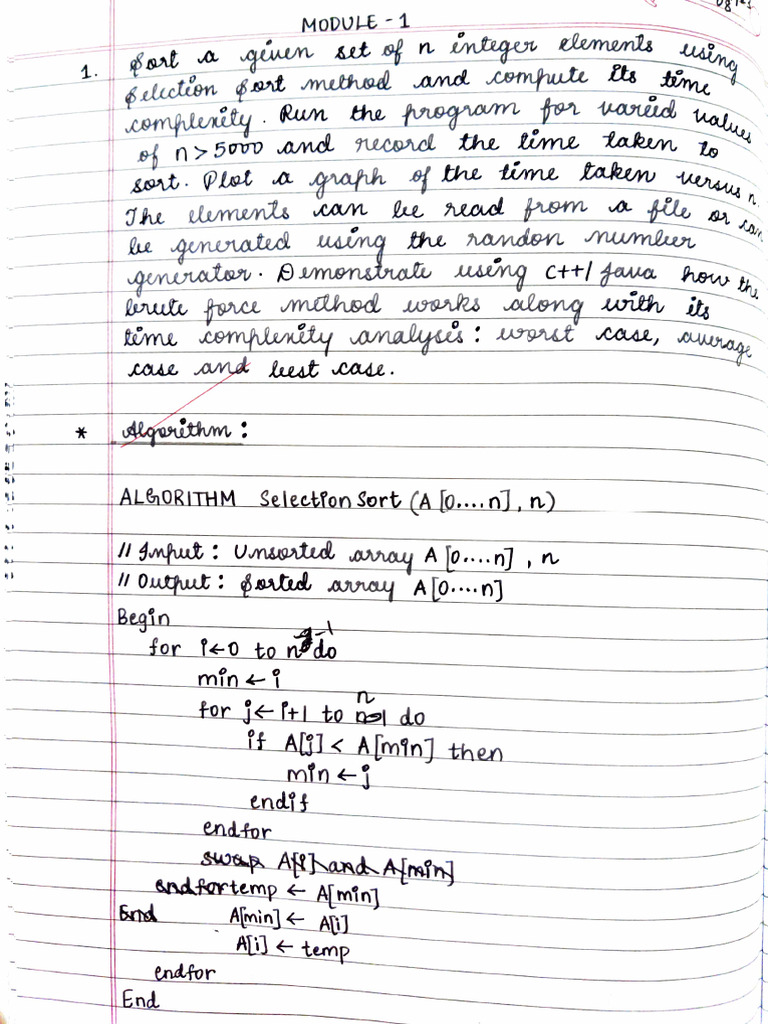 MODULE - 1
1. Sort a given set of n integer elements using
Selection Sort method and compute its time
complexity. Run the program for varied values
of n > 5000 and record the time taken to
sort. Plot a graph of the time taken versus n.
The elements can be read from a file or can
be generated using the randon number
generator. Demonstrate using C++/Java how the
brute force method works along with its
time complexity analysis: worst case, average
case and best case.
* Algorithm:
ALGORITHM Selection Sort (A [0....n], n)
// Input: Unsorted array A [0....n], n
// Output: Sorted array A [0....n]
Begin
for i ← 0 to n-1 do
min ← i
for j ← i+1 to n do
if A[j] < A[min] then
min ← j
endif
endfor
swap A[i] and A[min]
endfor temp ← A[min]
End A[min] ← A[i]
A[i] ← temp
endfor
End